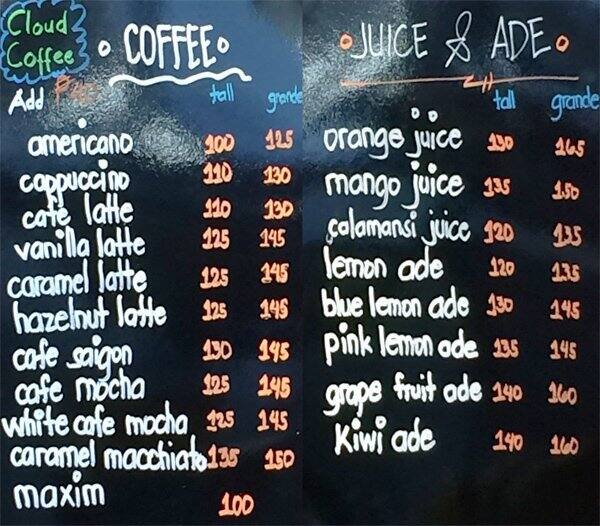 Cloud
Coffee
COFFEE
Add
tall grande
americano 100 125
cappuccino 110 130
cafe latte 110 130
vanilla latte 125 145
caramel latte 125 145
hazelnut latte 125 145
cafe saigon 130 145
cafe mocha 125 145
white cafe mocha 125 145
caramel macchiato 135 150
maxim 100
JUICE & ADE
tall grande
orange juice 130 165
mango juice 135 150
calamansi juice 120 135
lemon ade 120 135
blue lemon ade 130 145
pink lemon ade 135 145
grape fruit ade 140 160
Kiwi ade 140 160